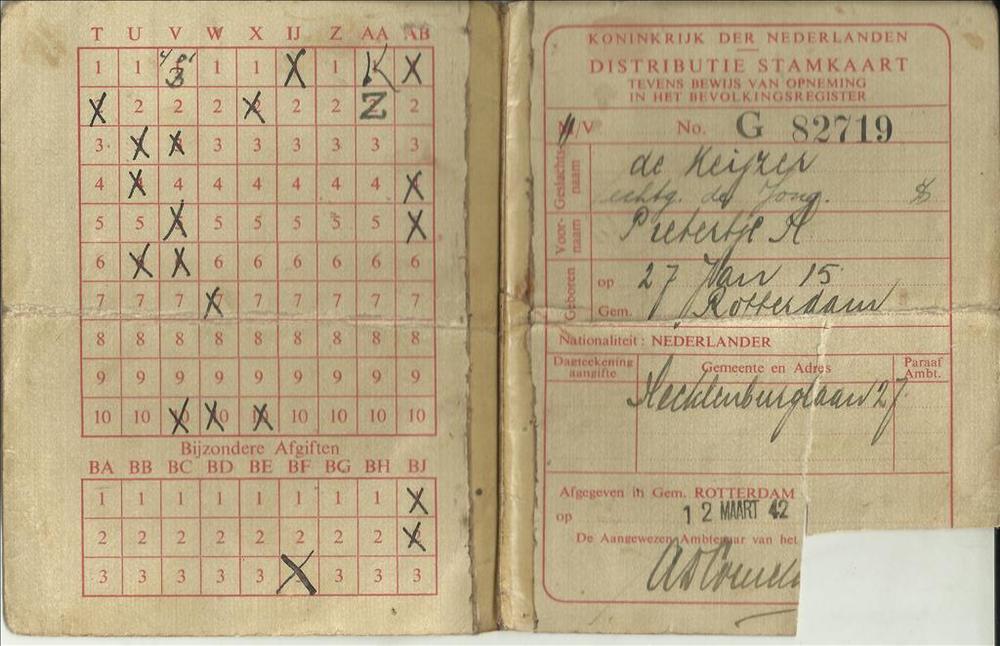 T U V W X IJ Z AA AB
1 1 3 1 1 1 K
2 2 2 2 Z 2
3 3 3 3 3 3 3
4 4 4 4 4 4 4
5 5 5 5 5 5 5
6 6 6 6 6 6 6
7 7 7 7 7 7 7 7
8 8 8 8 8 8 8 8 8
9 9 9 9 9 9 9 9 9
10 10 10 10 10 10
Bijzondere Afgiften
BA BB BC BD BE BF BG BH BJ
1 1 1 1 1 1 1 1
2 2 2 2 2 2 2 2
3 3 3 3 3 3 3 3
KONINKRIJK DER NEDERLANDEN
DISTRIBUTIE STAMKAART
TEVENS BEWIJS VAN OPNEMING
IN HET BEVOLKINGSREGISTER
M/V No. G 82719
Geslachtsnaam de Keijzer
echtg. de Jong.
Voornaam Pietertje A
Geboren op 27 Jan 15
Gem. Rotterdam
Nationaliteit : NEDERLANDER
Dagteekening aangifte Gemeente en Adres Paraaf Ambt.
Mecklenburglaan 27
Afgegeven in Gem. ROTTERDAM
op 12 MAART 42
De Aangewezen Ambtenaar van het